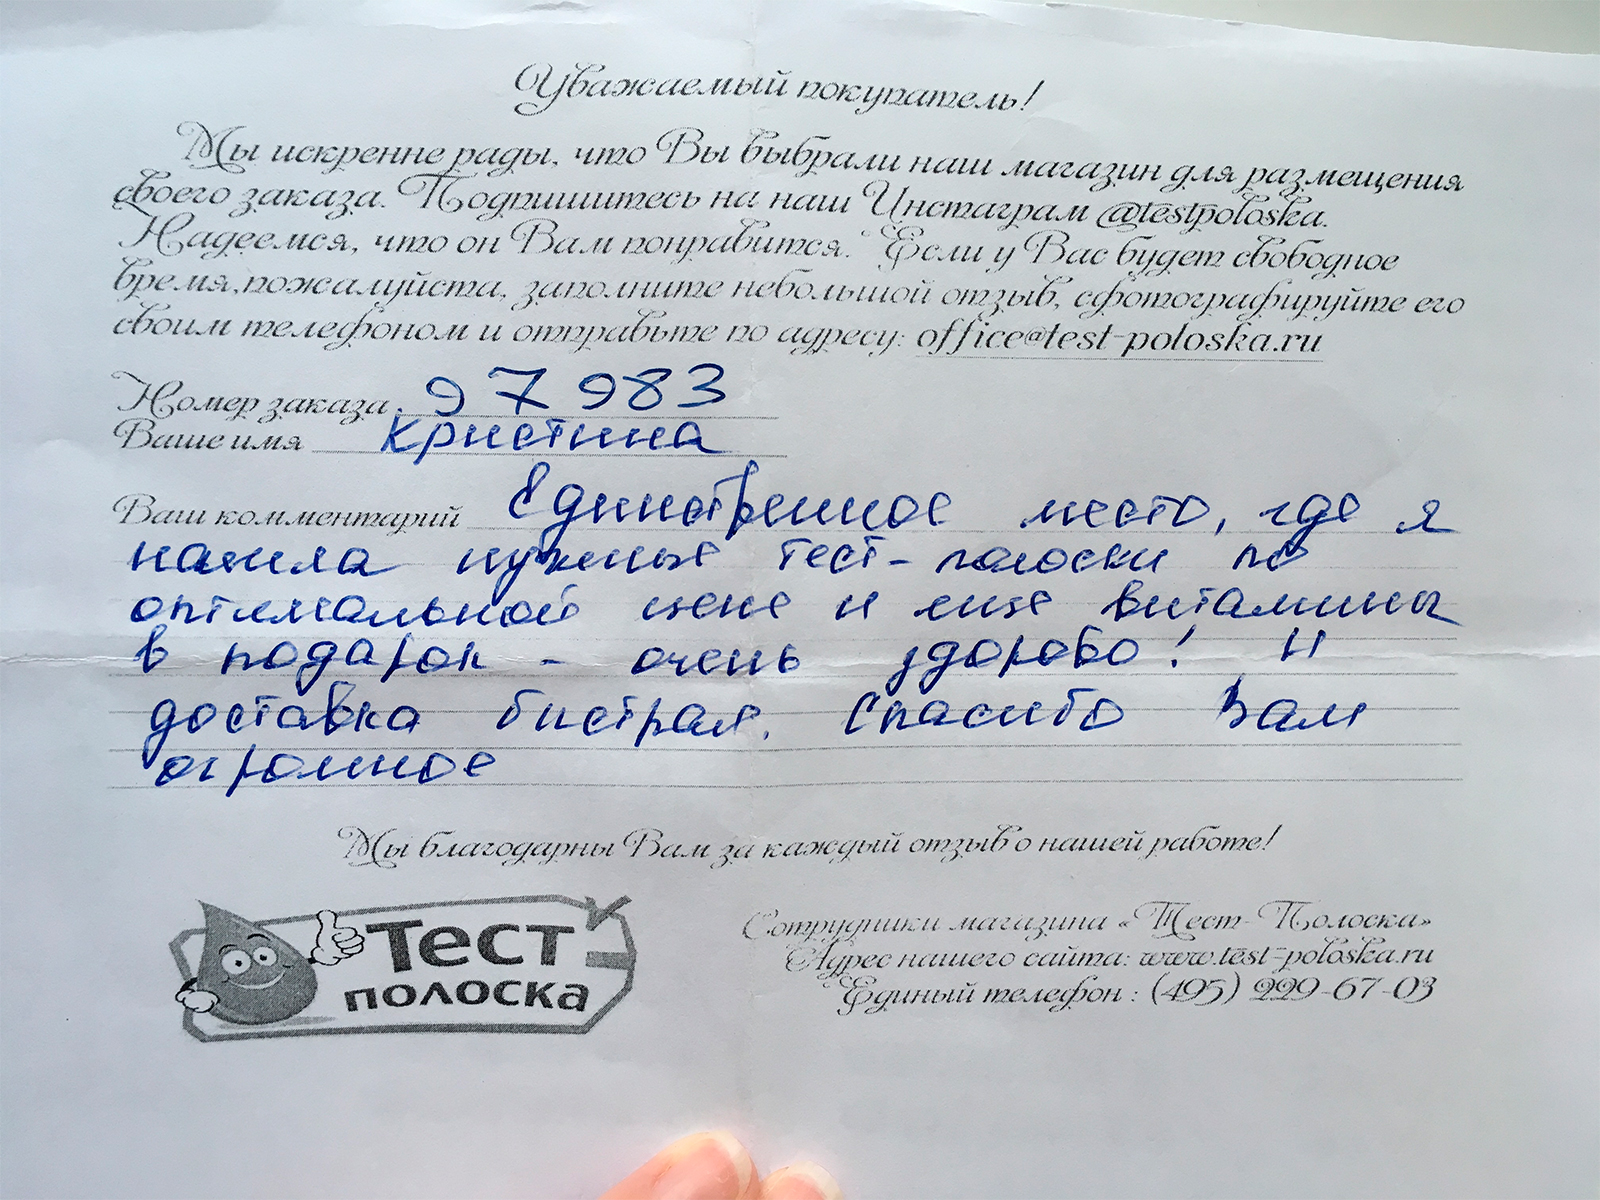 Уважаемый покупатель!
Мы искренне рады, что Вы выбрали наш магазин для размещения
своего заказа. Подпишитесь на наш Инстаграм @testpoloska.
Надеемся, что он Вам понравится. Если у Вас будет свободное
время,пожалуйста, заполните небольшой отзыв, сфотографируйте его
своим телефоном и отправьте по адресу: office@test-poloska.ru
Номер заказа 97983
Ваше имя Кристина
Ваш комментарий Единственное место, где я
нашла нужные тест-полоски по
оптимальной цене и еще витамины
в подарок - очень здорово! И
доставка быстрая. Спасибо Вам
огромное
Мы благодарны Вам за каждый отзыв о нашей работе!
Тест
полоска
Сотрудники магазина «Тест-Полоска»
Адрес нашего сайта: www.test-poloska.ru
Единый телефон : (495) 229-67-03